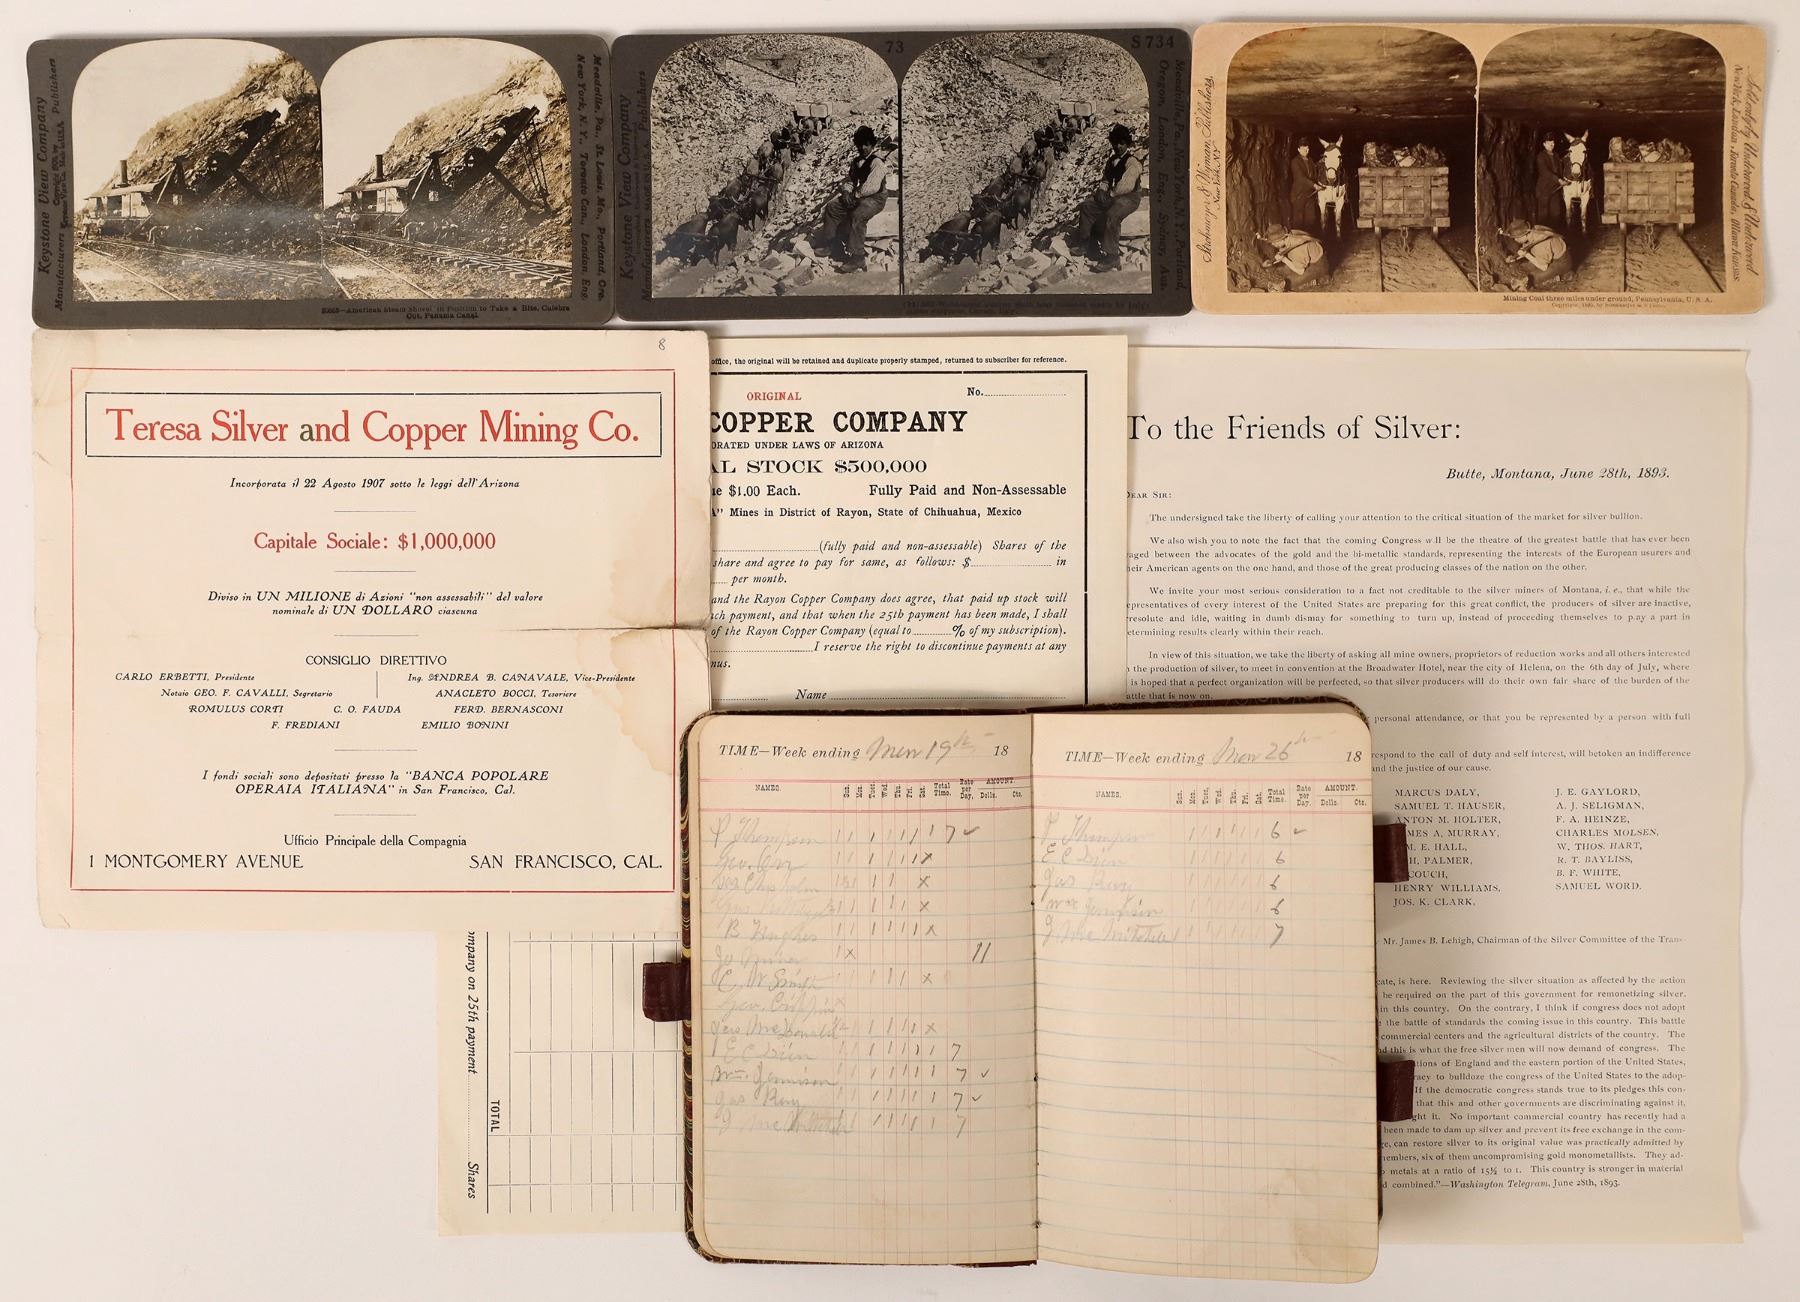 Keystone View Company
Manufacturers Publishers
Meadville, Pa., St. Louis, Mo., Portland, Ore.
New York, N. Y., Toronto Can., London, Eng.
American Steam Shovel in Position to Take a Bite, Culebra
Cut, Panama Canal.
73
S 734
Keystone View Company
Manufacturers Publishers
Meadville, Pa., New York, N. Y., Portland,
Oregon, London, Eng., Sydney, Aus.
Strohmeyer & Wyman, Publishers,
New York, N.Y.
Sold only by Underwood & Underwood
New York, London, Toronto-Canada, Ottawa-Kansas
Mining Coal three miles under ground, Pennsylvania, U. S. A.
8
Teresa Silver and Copper Mining Co.
Incorporata il 22 Agosto 1907 sotto le leggi dell'Arizona
Capitale Sociale: $1,000,000
Diviso in UN MILIONE di Azioni "non assessabili" del valore
nominale di UN DOLLARO ciascuna
CONSIGLIO DIRETTIVO
CARLO ERBETTI, Presidente
Ing. ANDREA B. CANAVALE, Vice-Presidente
Notaio GEO. F. CAVALLI, Segretario
ANACLETO BOCCI, Tesoriere
ROMULUS CORTI C. O. FAUDA FERD. BERNASCONI
F. FREDIANI EMILIO BONINI
I fondi sociali sono depositati presso la "BANCA POPOLARE
OPERAIA ITALIANA" in San Francisco, Cal.
Ufficio Principale della Compagnia
1 MONTGOMERY AVENUE SAN FRANCISCO, CAL.
office, the original will be retained and duplicate properly stamped, returned to subscriber for reference.
ORIGINAL No.
COPPER COMPANY
ORATED UNDER LAWS OF ARIZONA
AL STOCK $500,000
ue $1.00 Each. Fully Paid and Non-Assessable
A" Mines in District of Rayon, State of Chihuahua, Mexico
(fully paid and non-assessable) Shares of the
share and agree to pay for same, as follows: $ in
per month.
and the Rayon Copper Company does agree, that paid up stock will
ach payment, and that when the 25th payment has been made, I shall
of the Rayon Copper Company (equal to % of my subscription).
I reserve the right to discontinue payments at any
nus.
Name
ompany on 25th payment Shares
TOTAL
To the Friends of Silver:
Butte, Montana, June 28th, 1893.
DEAR SIR:
The undersigned take the liberty of calling your attention to the critical situation of the market for silver bullion.
We also wish you to note the fact that the coming Congress will be the theatre of the greatest battle that has ever been
aged between the advocates of the gold and the bi-metallic standards, representing the interests of the European usurers and
heir American agents on the one hand, and those of the great producing classes of the nation on the other.
We invite your most serious consideration to a fact not creditable to the silver miners of Montana, i. e., that while the
epresentatives of every interest of the United States are preparing for this great conflict, the producers of silver are inactive,
rresolute and idle, waiting in dumb dismay for something to turn up, instead of proceeding themselves to play a part in
etermining results clearly within their reach.
In view of this situation, we take the liberty of asking all mine owners, proprietors of reduction works and all others interested
n the production of silver, to meet in convention at the Broadwater Hotel, near the city of Helena, on the 6th day of July, where
is hoped that a perfect organization will be perfected, so that silver producers will do their own fair share of the burden of the
attle that is now on.
personal attendance, or that you be represented by a person with full
respond to the call of duty and self interest, will betoken an indifference
and the justice of our cause.
MARCUS DALY, J. E. GAYLORD,
SAMUEL T. HAUSER, A. J. SELIGMAN,
ANTON M. HOLTER, F. A. HEINZE,
MES A. MURRAY, CHARLES MOLSEN,
M. E. HALL, W. THOS. HART,
H. PALMER, R. T. BAYLISS,
COUCH, B. F. WHITE,
HENRY WILLIAMS, SAMUEL WORD.
JOS. K. CLARK,
Mr. James B. Lehigh, Chairman of the Silver Committee of the Tran-
cate, is here. Reviewing the silver situation as affected by the action
be required on the part of this government for remonetizing silver.
in this country. On the contrary, I think if congress does not adopt
the battle of standards the coming issue in this country. This battle
commercial centers and the agricultural districts of the country. The
d this is what the free silver men will now demand of congress. The
tions of England and the eastern portion of the United States,
racy to bulldoze the congress of the United States to the adop-
If the democratic congress stands true to its pledges this con-
that this and other governments are discriminating against it,
ght it. No important commercial country has recently had a
been made to dam up silver and prevent its free exchange in the com-
e, can restore silver to its original value was practically admitted by
members, six of them uncompromising gold monometallists. They ad-
metals at a ratio of 15½ to 1. This country is stronger in material
d combined."—Washington Telegram, June 28th, 1893.
TIME—Week ending 19th 18
NAMES. Sun. Mon. Tues. Wed. Thu. Fri. Sat. Total Time. Rate per Day. AMOUNT. Dolls. Cts.
P Thompson 7
Geo. Orr
Wm Chisholm
B Hughes
11
C. W Smith
Geo.
Jas McDonald
E C
Wm. Jennison 7
Gus 7
J 7
TIME—Week ending 26th 18
NAMES. Sun. Mon. Tues. Wed. Thu. Fri. Sat. Total Time. Rate per Day. AMOUNT. Dolls. Cts.
P Thompson 6
E C 6
Gus 6
Wm Jennison 6
J 7